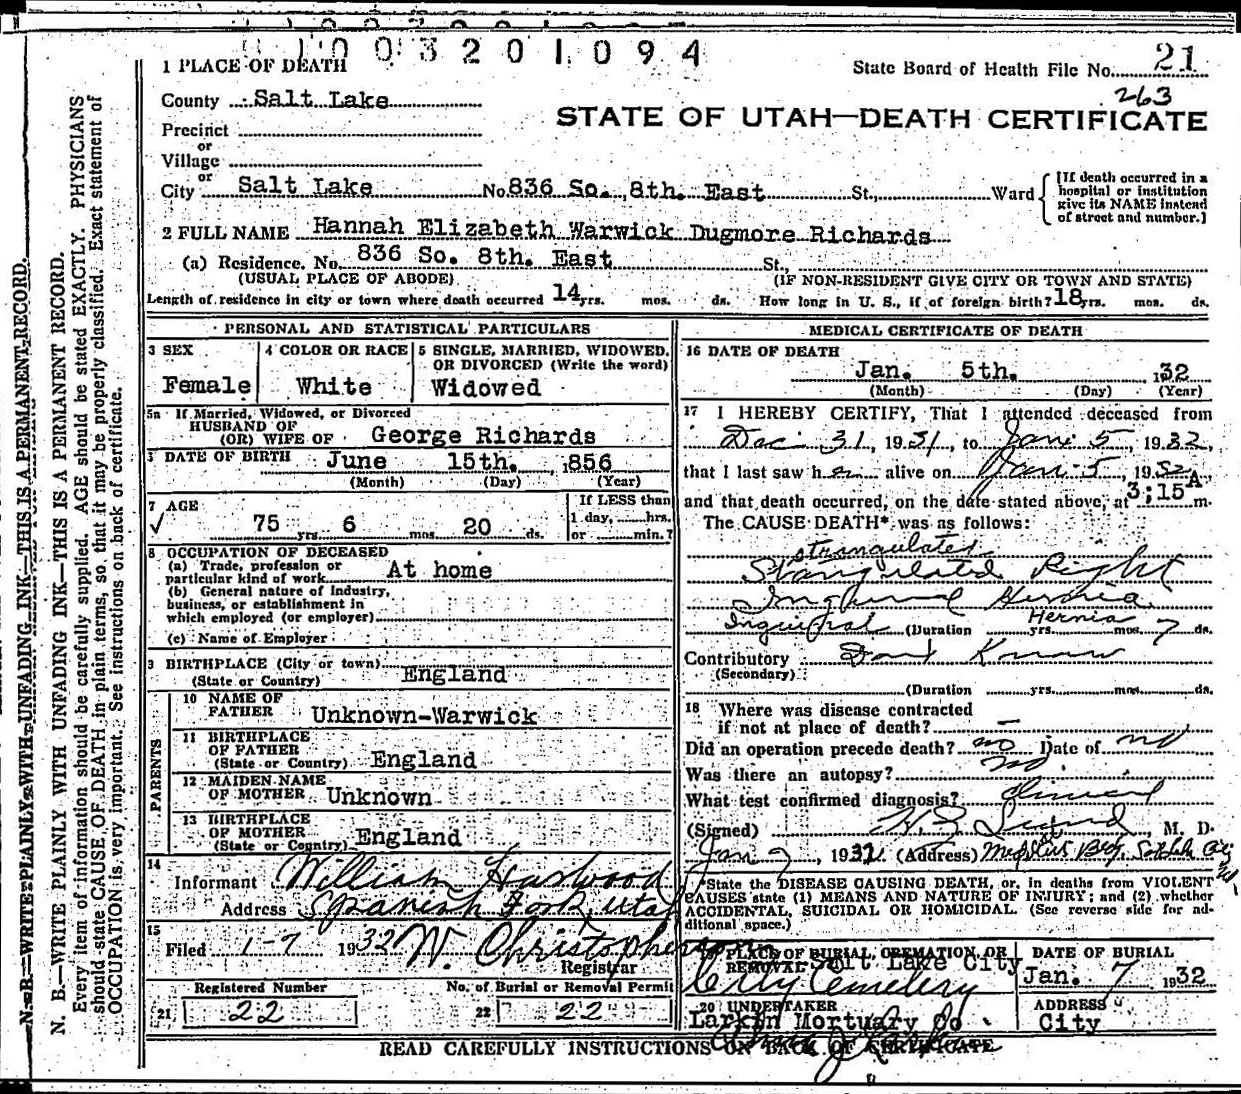 1003201094
1 PLACE OF DEATH
State Board of Health File No. 21
263
County Salt Lake
STATE OF UTAH—DEATH CERTIFICATE
Precinct
or
Village
or
City Salt Lake No. 836 So. 8th. East St., Ward
[If death occurred in a hospital or institution give its NAME instead of street and number.]
2 FULL NAME Hannah Elizabeth Warwick Dugmore Richards
(a) Residence. No. 836 So. 8th. East St.,
(USUAL PLACE OF ABODE) (IF NON-RESIDENT GIVE CITY OR TOWN AND STATE)
Length of residence in city or town where death occurred 14 yrs. mos. ds. How long in U. S., if of foreign birth? 18 yrs. mos. ds.
PERSONAL AND STATISTICAL PARTICULARS
3 SEX Female
4 COLOR OR RACE White
5 SINGLE, MARRIED, WIDOWED, OR DIVORCED (Write the word) Widowed
5a If Married, Widowed, or Divorced
HUSBAND OF
(OR) WIFE OF George Richards
DATE OF BIRTH June 15th. 1856
(Month) (Day) (Year)
7 AGE 75 yrs. 6 mos. 20 ds.
If LESS than 1 day, hrs. or min.?
8 OCCUPATION OF DECEASED
(a) Trade, profession or particular kind of work At home
(b) General nature of industry, business, or establishment in which employed (or employer)
(c) Name of Employer
9 BIRTHPLACE (City or town)
(State or Country) England
PARENTS
10 NAME OF FATHER Unknown-Warwick
11 BIRTHPLACE OF FATHER
(State or Country) England
12 MAIDEN NAME OF MOTHER Unknown
13 BIRTHPLACE OF MOTHER
(State or Country) England
14
Informant William Haswood
Address Spanish Fork, Utah
15
Filed 1-7 1932 W. Christopherson
Registrar
Registered Number
21 22
No. of Burial or Removal Permit
22 22
MEDICAL CERTIFICATE OF DEATH
16 DATE OF DEATH
Jan. 5th. 1932
(Month) (Day) (Year)
17 I HEREBY CERTIFY, That I attended deceased from
Dec. 31, 1931, to Jan. 5, 1932,
that I last saw her alive on Jan. 5, 1932
and that death occurred, on the date stated above, at 3:15 A m.
The CAUSE DEATH* was as follows:
strangulated
Strangulated Right
Inguinal Hernia
Inguinal Hernia
(Duration yrs. mos. 7 ds.
Contributory Dont Know
(Secondary)
(Duration yrs. mos. ds.
18 Where was disease contracted
if not at place of death? —
Did an operation precede death? no Date of no
Was there an autopsy? no.
What test confirmed diagnosis? clinical
(Signed) M. D.
Jan 1932 (Address)
*State the DISEASE CAUSING DEATH, or, in deaths from VIOLENT
CAUSES state (1) MEANS AND NATURE OF INJURY; and (2) whether
ACCIDENTAL, SUICIDAL OR HOMICIDAL. (See reverse side for additional space.)
19 PLACE OF BURIAL, CREMATION, OR REMOVAL Salt Lake City
City Cemetery
DATE OF BURIAL
Jan. 7 1932
20 UNDERTAKER
Larkin Mortuary Co
ADDRESS
City
READ CAREFULLY INSTRUCTIONS ON BACK OF CERTIFICATE
N. B.—WRITE PLAINLY WITH UNFADING INK—THIS IS A PERMANENT RECORD.
N. B.—WRITE PLAINLY WITH UNFADING INK—THIS IS A PERMANENT RECORD.
Every item of information should be carefully supplied. AGE should be stated EXACTLY. PHYSICIANS
should state CAUSE OF DEATH in plain terms, so that it may be properly classified. Exact statement of
OCCUPATION is very important. See instructions on back of certificate.